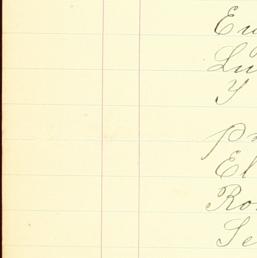 Eu
Lu
Y
Pr
El
Ros
Se